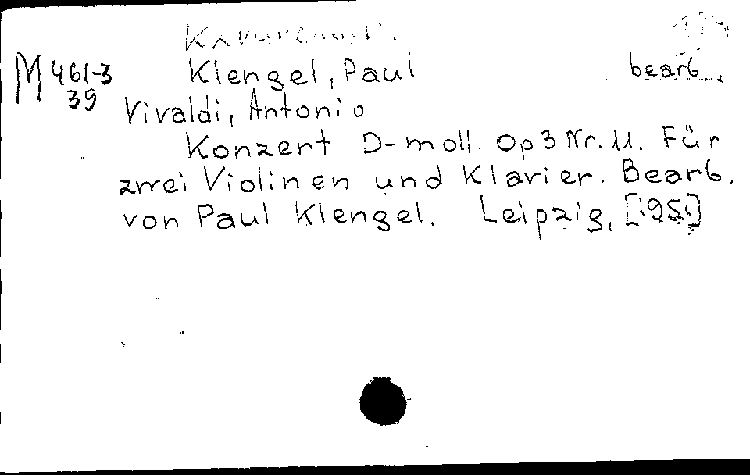 M 461-3
39
Klengel, Paul bearb.
Vivaldi, Antonio
Konzert D-moll Op 3 Nr. 11. Für
zwei Violinen und Klavier. Bearb.
von Paul Klengel. Leipzig,